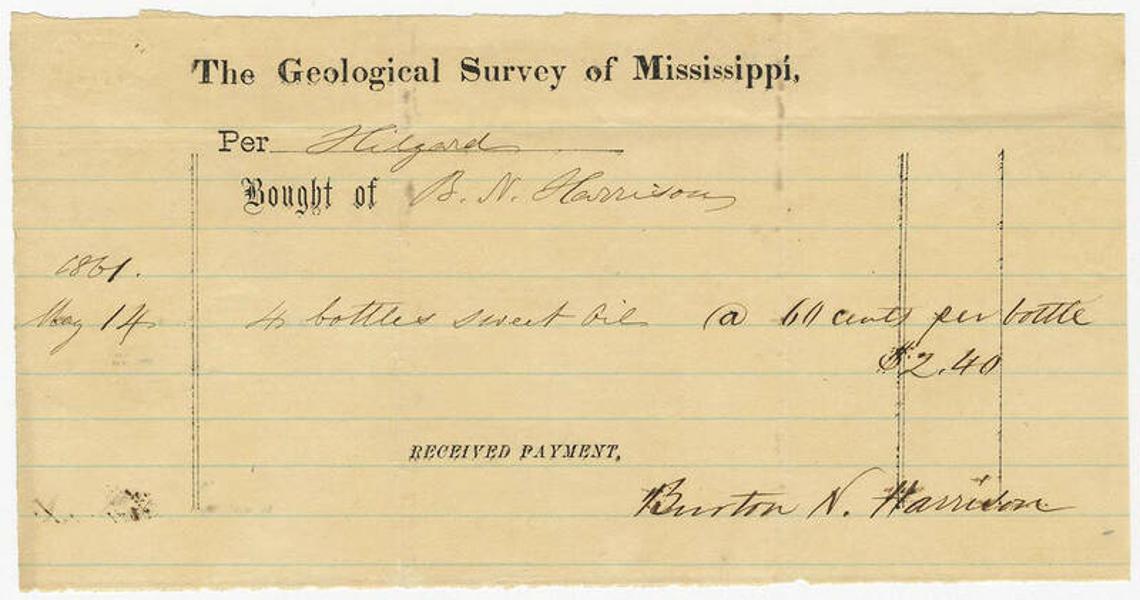 The Geological Survey of Mississippi,
Per Hilgard
Bought of B. N. Harrison
1861.
May 14 4 bottles sweet oil @ 60 cents per bottle
$2.40
RECEIVED PAYMENT,
Burton N. Harrison